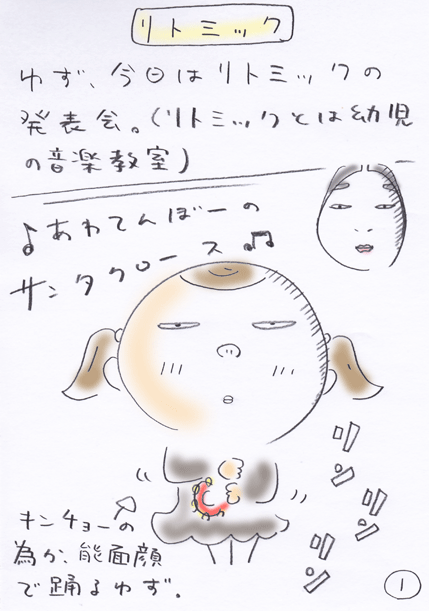 リトミック
ゆず、今日はリトミックの
発表会。(リトミックとは幼児
の音楽教室)
♪あわてんぼーの
サンタクロース♫
リン
リン
リン
キンチョーの
為か、能面顔
で踊るゆず。
1